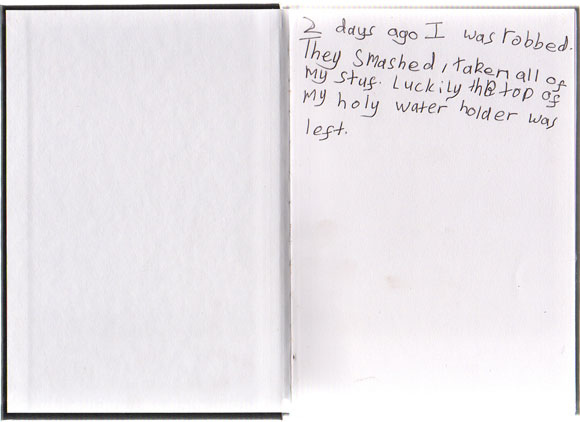 2 days ago I was robbed.
They smashed, taken all of
my stuf. Luckily the top of
my holy water holder was
left.